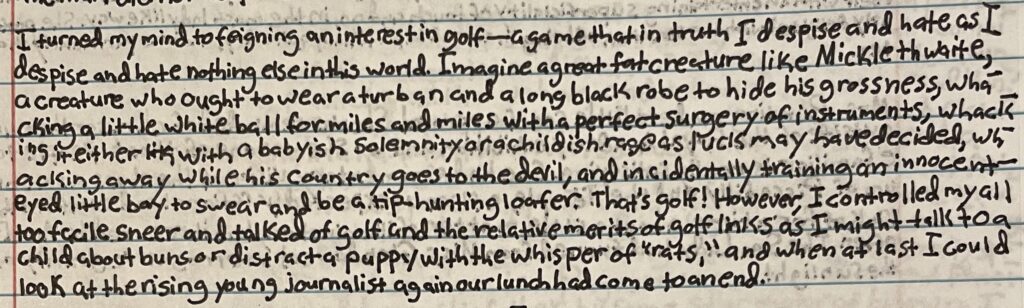 I turned my mind to feigning an interest in golf—a game that in truth I despise and hate as I
despise and hate nothing else in this world. Imagine a great fat creature like Micklethwaite,
a creature who ought to wear a turban and a long black robe to hide his grossness, wha-
cking a little white ball for miles and miles with a perfect surgery of instruments, whack-
ing it either with a babyish solemnity or a childish rage as luck may have decided, wh-
acking away while his country goes to the devil, and incidentally training an innocent-
eyed little boy to swear and be a tip-hunting loafer. That's golf! However, I controlled my all
too facile sneer and talked of golf and the relative merits of golf links as I might talk to a
child about buns or distract a puppy with the whisper of "rats," and when at last I could
look at the rising young journalist again our lunch had come to an end.